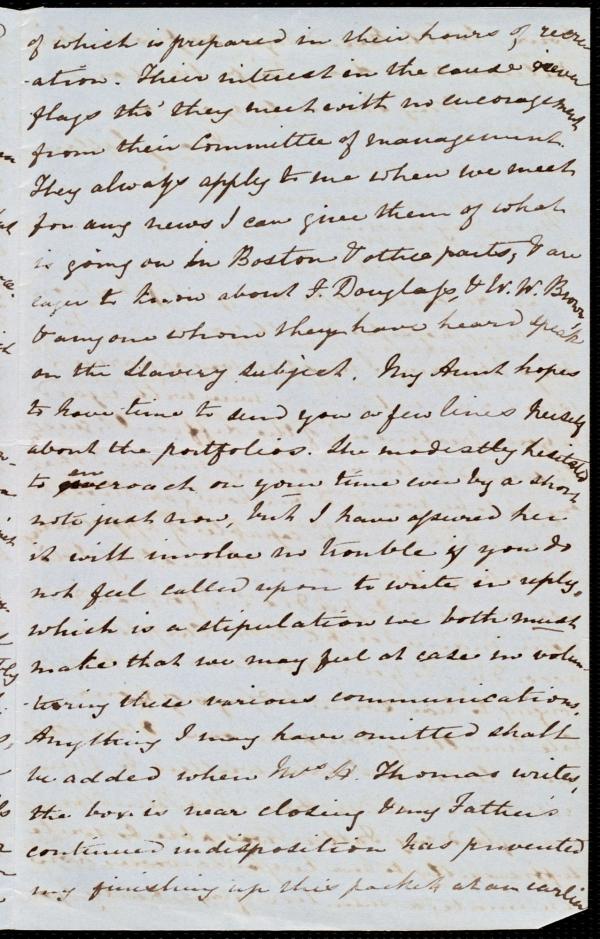 of which is prepared in their hours of recre
-ation. Their interest in the cause never
flags tho' they meet with no encouragement
from their Committee of management.
They always apply to me when we meet
for any news I can give them of what
is going on in Boston & other parts, & are
eager to know about F. Douglass, & W. W. Brown
& anyone whom they have heard speak
on the Slavery subject. My Aunt hopes
to have time to send you a few lines herself
about the portfolios. She modestly hesitated
to encroach on your time even by a short
note just now, but I have assured her
it will involve no trouble if you do
not feel called upon to write in reply,
which is a stipulation we both must
make that we may feel at ease in volun-
-teering these various communications.
Anything I may have omitted shall
be added when Mrs. H. Thomas writes,
the box is near closing & my Father's
continued indisposition has prevented
my finishing up this packet at an earlier